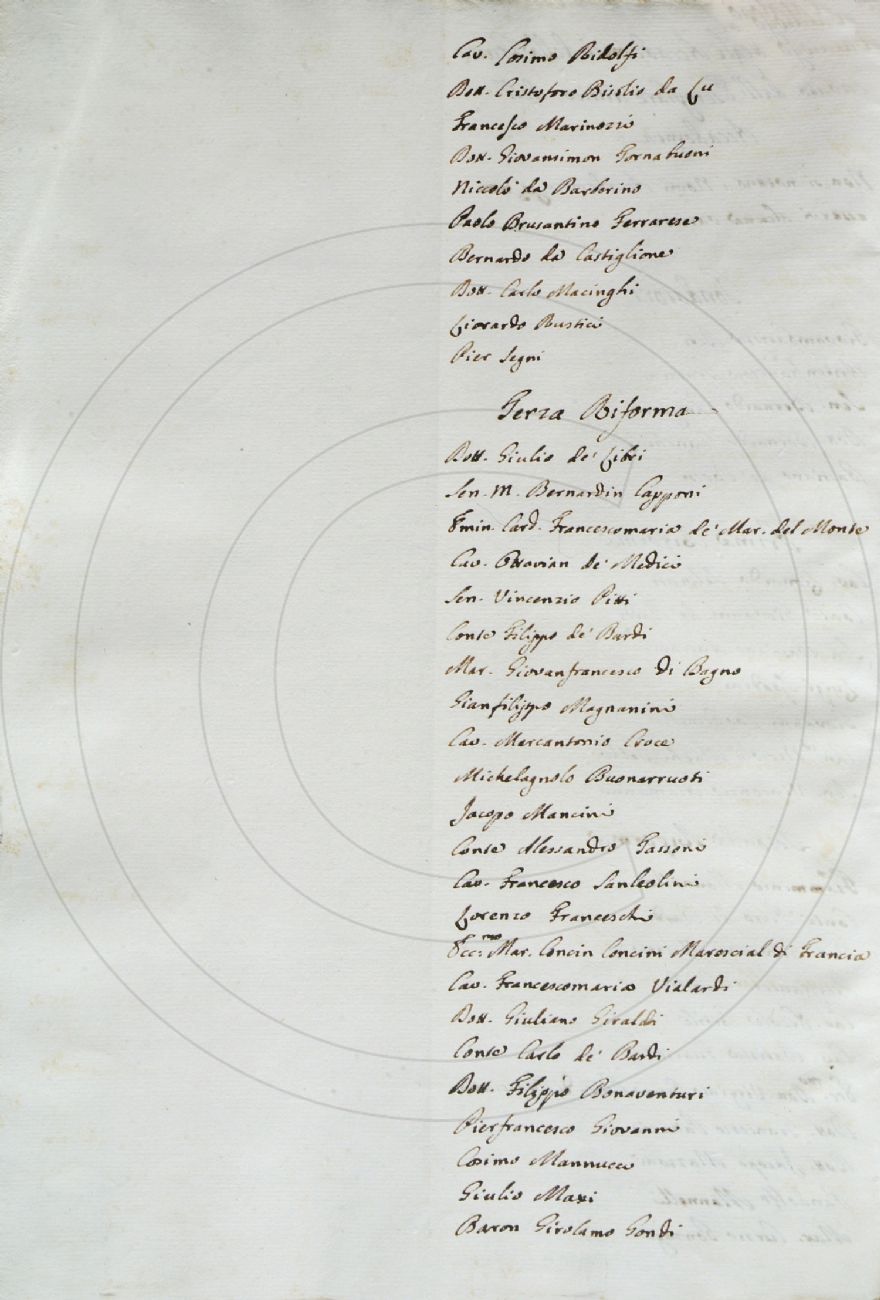 Cav. Cosimo Ridolfi
Dott. Cristoforo Bisolio da Lu
Francesco Marinozzi
Dott. Giovansimon Tornabuoni
Niccolò da Barberino
Paolo Brusantino Ferrarese
Bernardo da Castiglione
Dott. Carlo Macinghi
Lionardo Rustici
Pier Segni
Terza Riforma
Dott. Giulio de' Libri
Sen. M. Bernardin Capponi
Emin. Card. Francescomaria de' Mar. del Monte
Cav. Ottavian de' Medici
Sen. Vincenzio Pitti
Conte Filippo de' Bardi
Mar. Giovanfrancesco di Bagno
Gianfilippo Magnanini
Cav. Marcantonio Croce
Michelagnolo Buonarruoti
Jacopo Mancini
Conte Alessandro Tassoni
Cav. Francesco Sanleolini
Lorenzo Franceschi
Ecc:mo Mar. Concin Concini Marescial di Francia
Cav. Francescomaria Vialardi
Dott. Giuliano Giraldi
Conte Carlo de' Bardi
Dott. Filippo Bonaventuri
Pierfrancesco Giovanni
Cosimo Mannucci
Giulio Mazi
Baron Girolamo Gondi